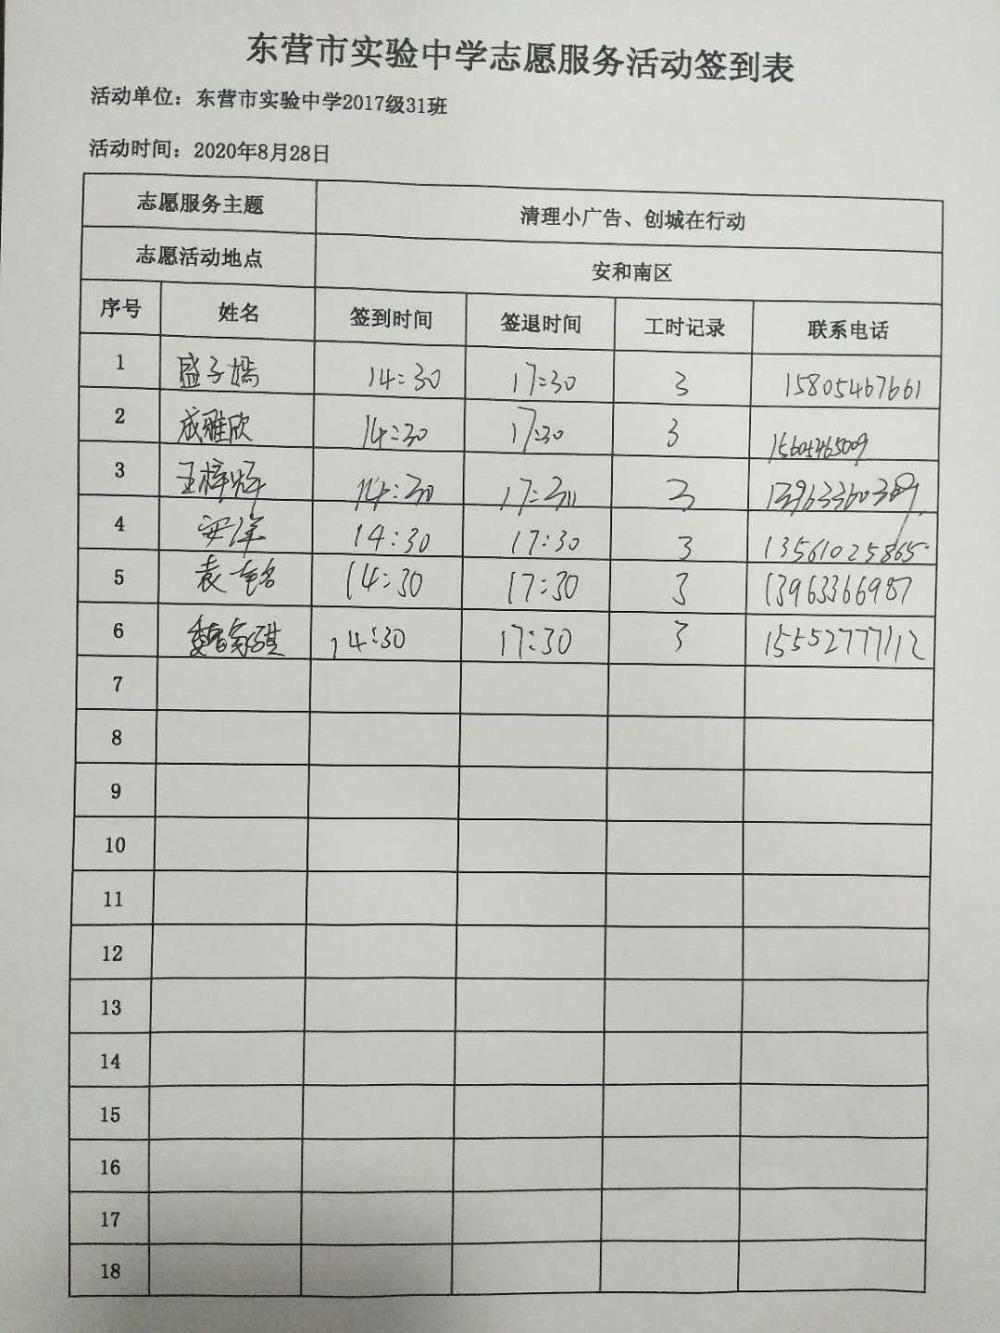 东营市实验中学志愿服务活动签到表
活动单位：东营市实验中学2017级31班
活动时间：2020年8月28日
志愿服务主题 清理小广告、创城在行动
志愿活动地点 安和南区
序号 姓名 签到时间 签退时间 工时记录 联系电话
1 盛子嫣 14:30 17:30 3 15805467661
2 成雅欣 14:30 17:30 3
3 14:30 17:30 3
4 安洋 14:30 17:30 3 13561025865
5 14:30 17:30 3 13963366987
6 14:30 17:30 3 15552777112
7
8
9
10
11
12
13
14
15
16
17
18